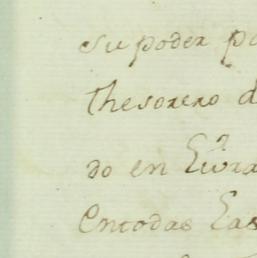 su poder po
Thesorero d
do en
Entodas Las